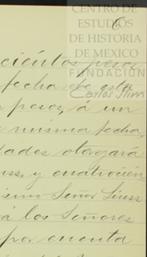 6
CENTRO DE
ESTUDIOS
DE HISTORIA
DE MEXICO
FUNDACIÓN
Carlos Slim
cientos pesos
fecha de esta
pesos, á un
misma fecha,
dades otorgará
y cuatrocien
Señor Liman
á los Señores
por cuenta